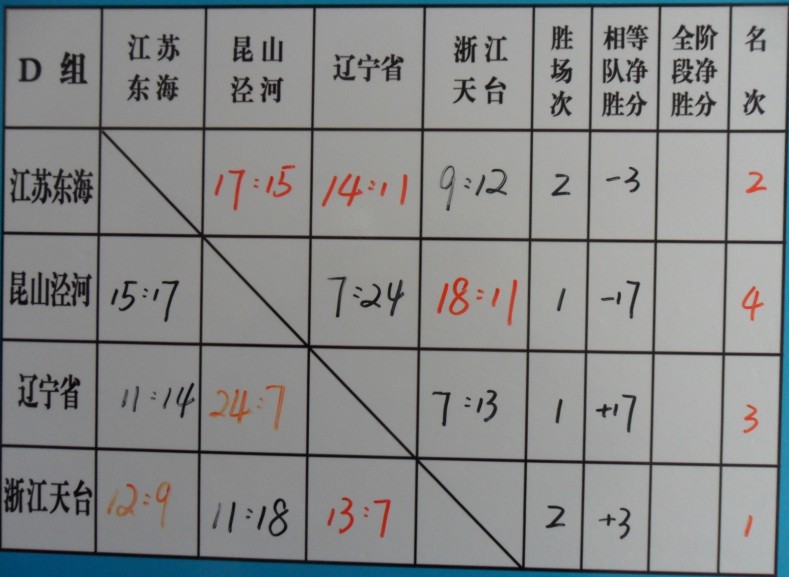 D 组 江苏东海 昆山泾河 辽宁省 浙江天台 胜场次 相等队净胜分 全阶段净胜分 名次
江苏东海 17:15 14:11 9:12 2 -3 2
昆山泾河 15:17 7:24 18:11 1 -17 4
辽宁省 11:14 24:7 7:13 1 +17 3
浙江天台 12:9 11:18 13:7 2 +3 1